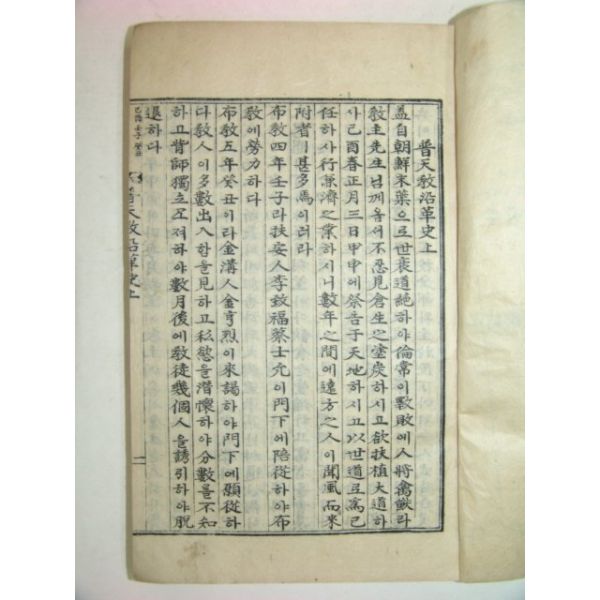 普天敎沿革史上
盖自朝鮮末葉으로世衰道絶하야倫常이斁敗에人將禽獸라
敎主先生님께옵서不忍見倉生之塗炭하시고欲扶植大道하
사己酉春正月三日甲申에祭告于天地하시고以世道로爲己
任하사行兼濟之業하시니數年之間에遠方之人이聞風而來
附者ㅣ甚多焉이러라
布敎四年壬子라扶安人李鈫福蔡士允이門下에陪從하야布
敎에勞力하다
布敎五年癸丑이라金溝人金亨烈이來謁하야門下에願從하
다敎人이多數出入함을見하고私慾을潛懷하야分數를不知
하고背師獨立코저하야數月後에敎徒幾個人을誘引하야脫
退하다
己酉 壬子 癸丑
普天敎沿革史上
一